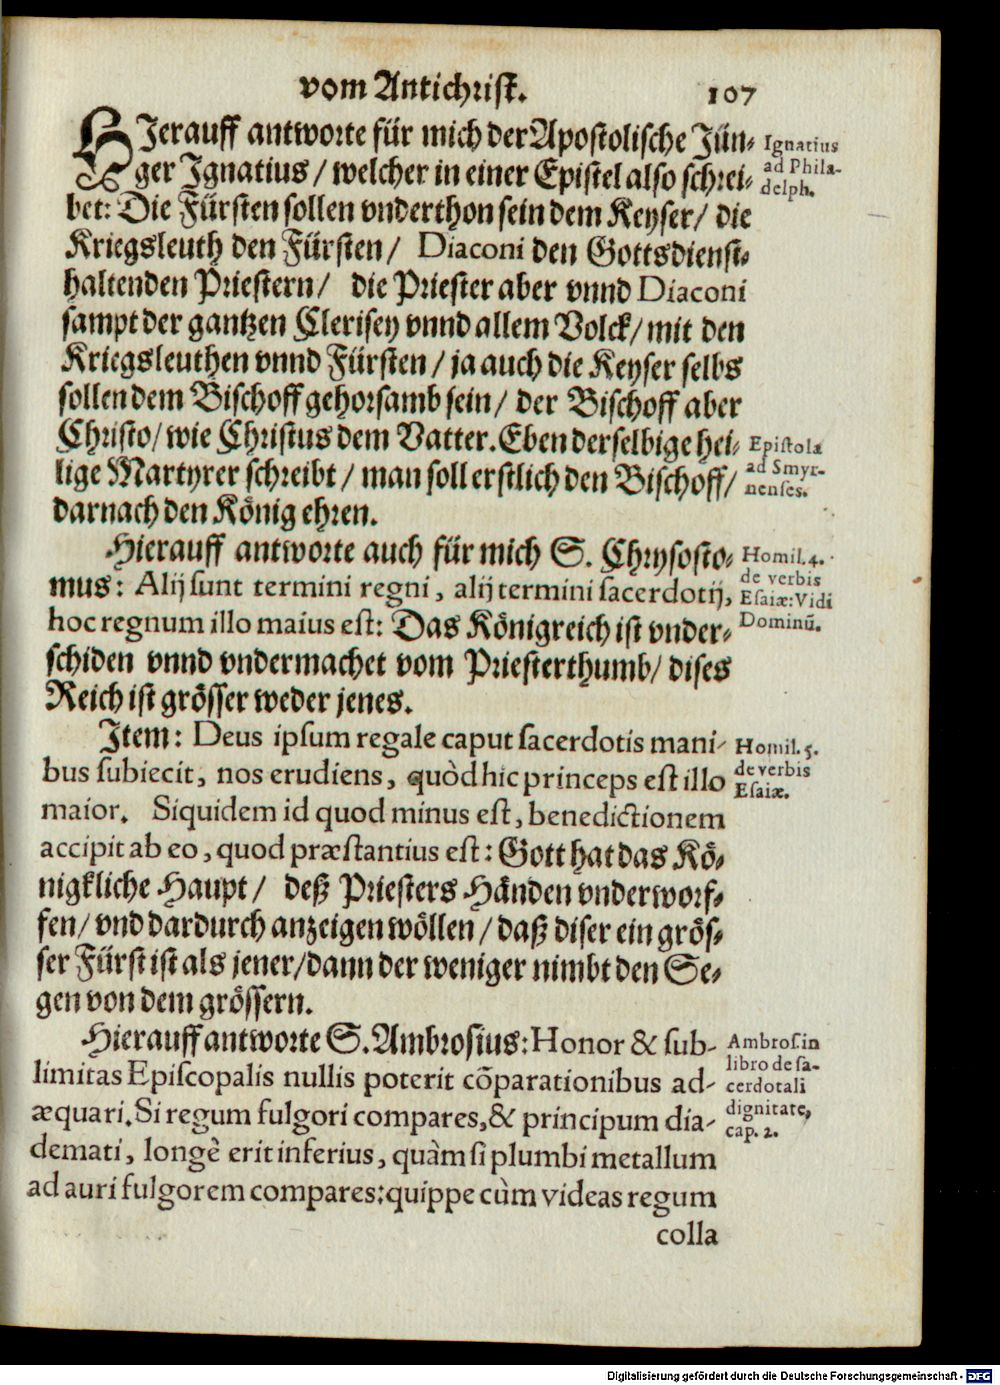 vom Antichrist. 107
HIerauff antworte für mich der Apostolische Jün-
ger Ignatius / welcher in einer Epistel also schrei-
bet: Die Fürsten sollen vnderthon sein dem Keyser / die
Kriegsleuth den Fürsten / Diaconi den Gottsdienst-
haltenden Priestern / die Priester aber vnnd Diaconi
sampt der gantzen Clerisey vnnd allem Volck / mit den
Kriegsleuthen vnnd Fürsten / ja auch die Keyser selbs
sollen dem Bischoff gehorsamb sein / der Bischoff aber
Christo / wie Christus dem Vatter. Eben derselbige hei-
lige Martyrer schreibt / man soll erstlich den Bischoff /
darnach den König ehren.
Hierauff antworte auch für mich S. Chrysosto-
mus: Alij sunt termini regni, alij termini sacerdotij,
hoc regnum illo maius est: Das Königreich ist vnder-
schiden vnnd vndermachet vom Priesterthumb / dises
Reich ist grösser weder jenes.
Item: Deus ipsum regale caput sacerdotis mani-
bus subiecit, nos erudiens, quòd hic princeps est illo
maior. Siquidem id quod minus est, benedictionem
accipit ab eo, quod præstantius est: Gott hat das Kö-
nigkliche Haupt / deß Priesters Händen vnderworf-
fen / vnd dardurch anzeigen wöllen / daß diser ein grös-
ser Fürst ist als jener / dann der weniger nimbt den Se-
gen von dem grössern.
Hierauff antworte S. Ambrosius: Honor & sub-
limitas Episcopalis nullis poterit cõparationibus ad-
æquari. Si regum fulgori compares, & principum dia-
demati, longè erit inferius, quàm si plumbi metallum
ad auri fulgorem compares: quippe cùm videas regum
colla
Ignatius
ad Phila-
delph.
Epistola
ad Smyr-
nenses.
Homil. 4.
de verbis
Esaiæ: Vidi
Dominũ.
Homil. 5.
de verbis
Esaiæ.
Ambros. in
libro de sa-
cerdotali
dignitate,
cap. 2.
Digitalisierung gefördert durch die Deutsche Forschungsgemeinschaft - DFG